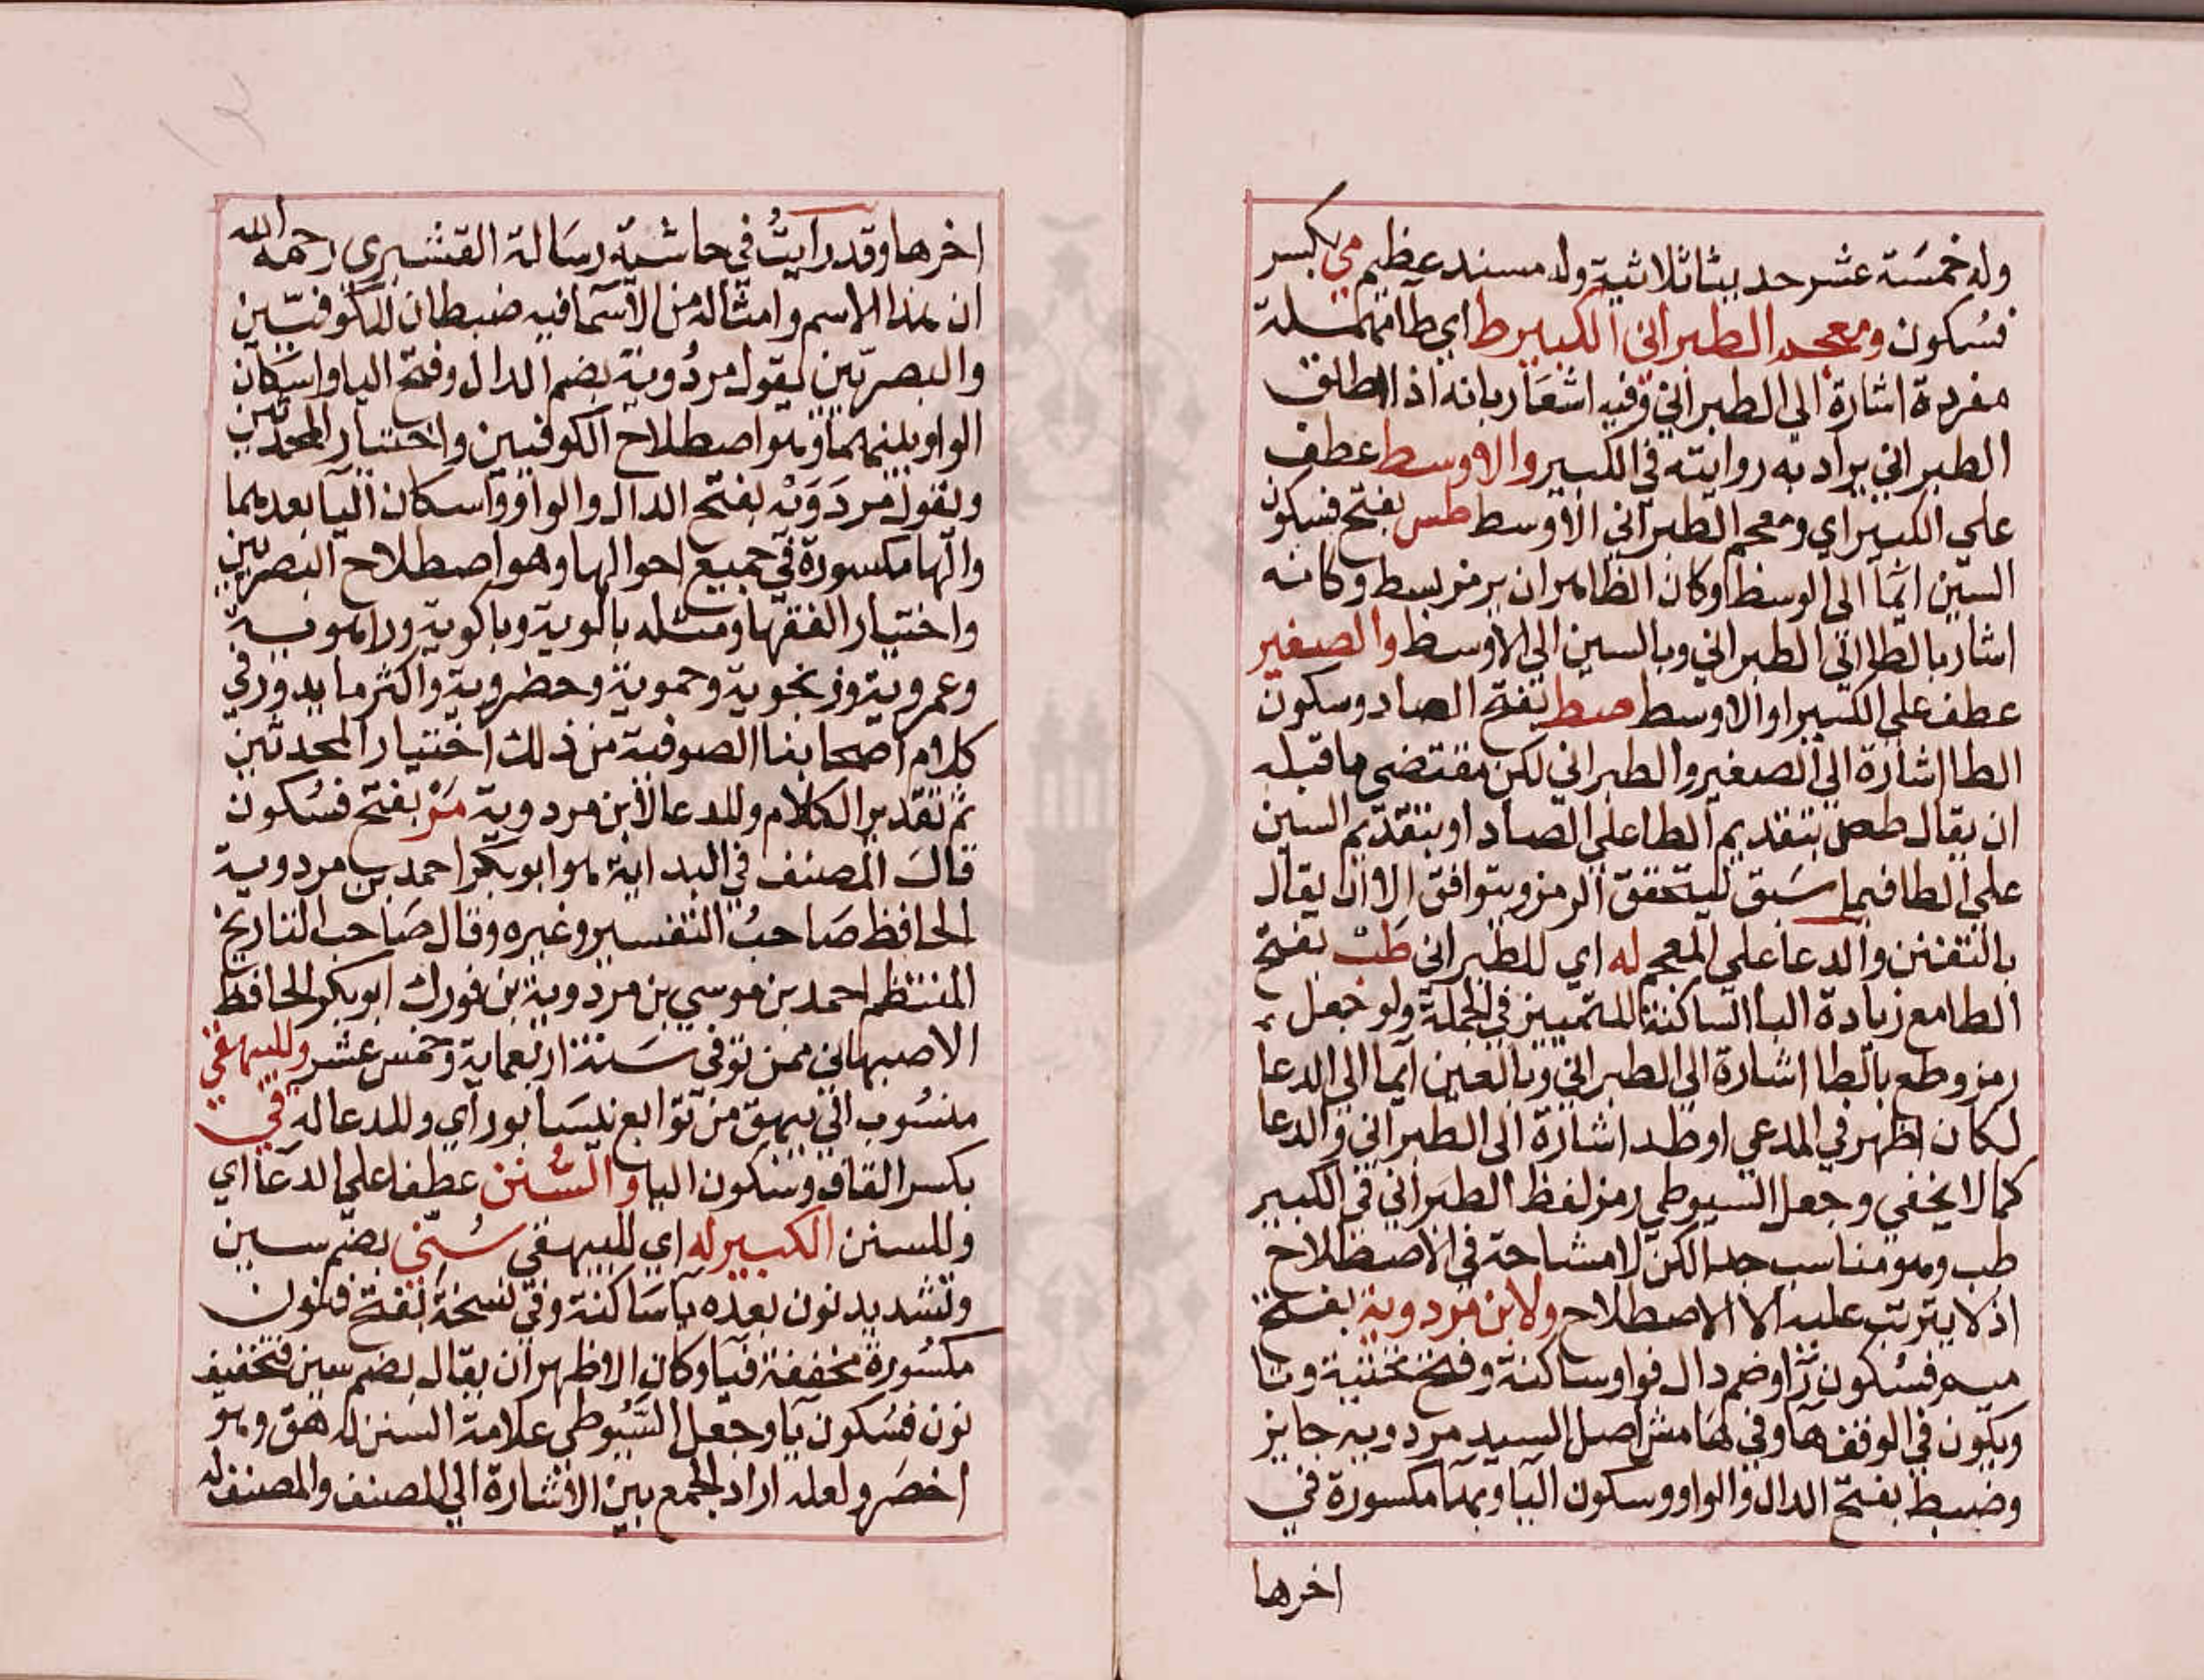 وله خمسة عشر حديثا ثلاثية وله مسند عظيم مي بكسر
فسكون ومعجم الطبراني الكبير ط اي طا مهملة
مفردة اشارة الي الطبراني وفيه اشعار بانه اذا اطلق
الطبراني يراد به روايته في الكبير والاوسط عطف
علي الكبير اي ومعجم الطبراني الاوسط طس بفتح فسكون
السين ايما الي الوسط وكان الظاهر ان يرمز بسط وكانه
اشار بالطا الي الطبراني وبالسين الي الاوسط والصغير
عطف علي الكبير او الاوسط صط بفتح الصاد وسكون
الطا اشارة الي الصغير والطبراني لكن مقتضي ما قبله
ان يقال طص بتقديم الطا علي الصاد او بتقديم السين
علي الطا فيما سبق ليتحقق الرمز ويتوافق الا ان يقال
بالتفنن والدعا علي المعجم له اي للطبراني طب بفتح
الطا مع زيادة البا الساكنة للتمييز في الجملة ولو جعل
رمزه طع بالطا اشارة الي الطبراني وبالعين ايما الي الدعا
لكان اظهر في المدعي او طد اشارة الي الطبراني والدعا
كما لا يخفي وجعل السيوطي رمز لفظ الطبراني في الكبير
طب وهو مناسب جدا لكن لا مشاحة في الاصطلاح
اذ لا يترتب عليه الا الاصطلاح ولابن مردوية بفتح
ميم فسكون را وضم دال فواو ساكنة وفتح تحتية وتا
ويكون في الوقف ها وفي هامش اصل السيد مردويه جايز
وضبط بفتح الدال والواو وسكون اليا وبها مكسورة في
اخرها
اخرها وقد رايت في حاشية رسالة القشيري رحمه الله
ان هذا الاسم وامثاله من الاسما فيه ضبطان للكوفيين
والبصريين يقول مردوية بضم الدال وفتح اليا واسكان
الواو بينهما وهو اصطلاح الكوفيين واختيار المحدثين
ونقول مردويه بفتح الدال والواو واسكان اليا بعدهما
والها مكسورة في جميع احوالها وهو اصطلاح البصريين
واختيار الفقها ومثله بالوية وباكوية وراهوية
وعمروية وزنجوية وحموية وحضروية واكثر ما يدور في
كلام اصحابنا الصوفية من ذلك اختيار المحدثين
ثم تقدير الكلام وللدعا لابن مردوية مر بفتح فسكون
قال المصنف في البداية هو ابو بكر احمد بن مردوية
الحافظ صاحب التفسير وغيره وقال صاحب التاريخ
المنتظم احمد بن موسي بن مردوية بن فورك ابو بكر الحافظ
الاصبهاني ممن توفي سنة اربعماية وخمس عشر وللبيهقي
منسوب الي بيهق من توابع نيسابور اي وللدعا له قي
بكسر القاف وسكون اليا والسنن عطفا علي الدعا اي
وللسنن الكبير له اي للبيهقي سني بضم سين
وتشديد نون بعده يا ساكنة وفي نسخة بفتح فنون
مكسورة مخففة فيا وكان الاظهر ان يقال بضم سين فتخفيف
نون فسكون يا وجعل السيوطي علامة السنن له هق وهو
اخصر ولعله اراد الجمع بين الاشارة الي المصنف والمصنف له